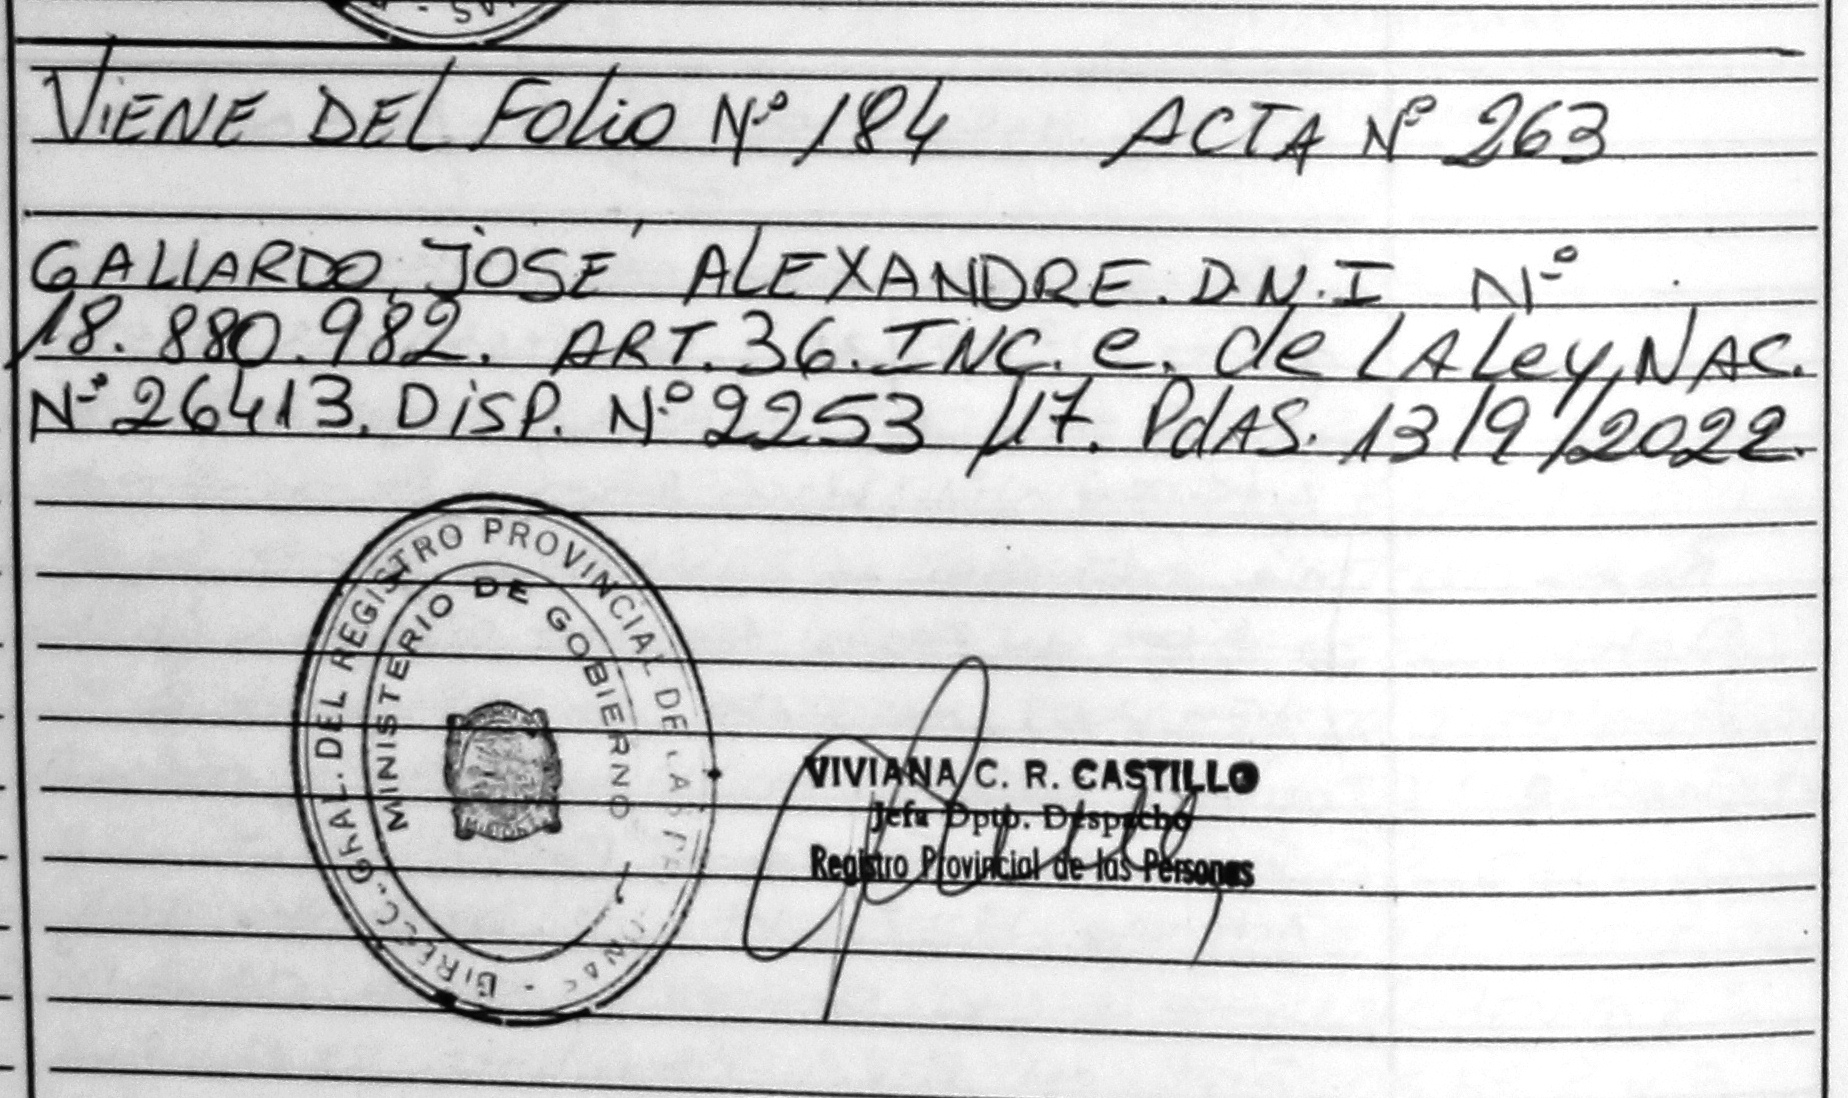 VIENE DEL FOLIO Nº 184 ACTA Nº 263
GALLARDO, JOSÉ ALEXANDRE. D.N.I Nº
18.880.982. ART. 36. INC. e. de LA Ley, NAC.
Nº 26413. DISP. Nº 2253/17. PdAS. 13/9/2022.
DIREC. GRAL. DEL REGISTRO PROVINCIAL DE LAS PERSONAS
MINISTERIO DE GOBIERNO
VIVIANA C. R. CASTILLO
Jefa Dpto. Despacho
Registro Provincial de las Personas